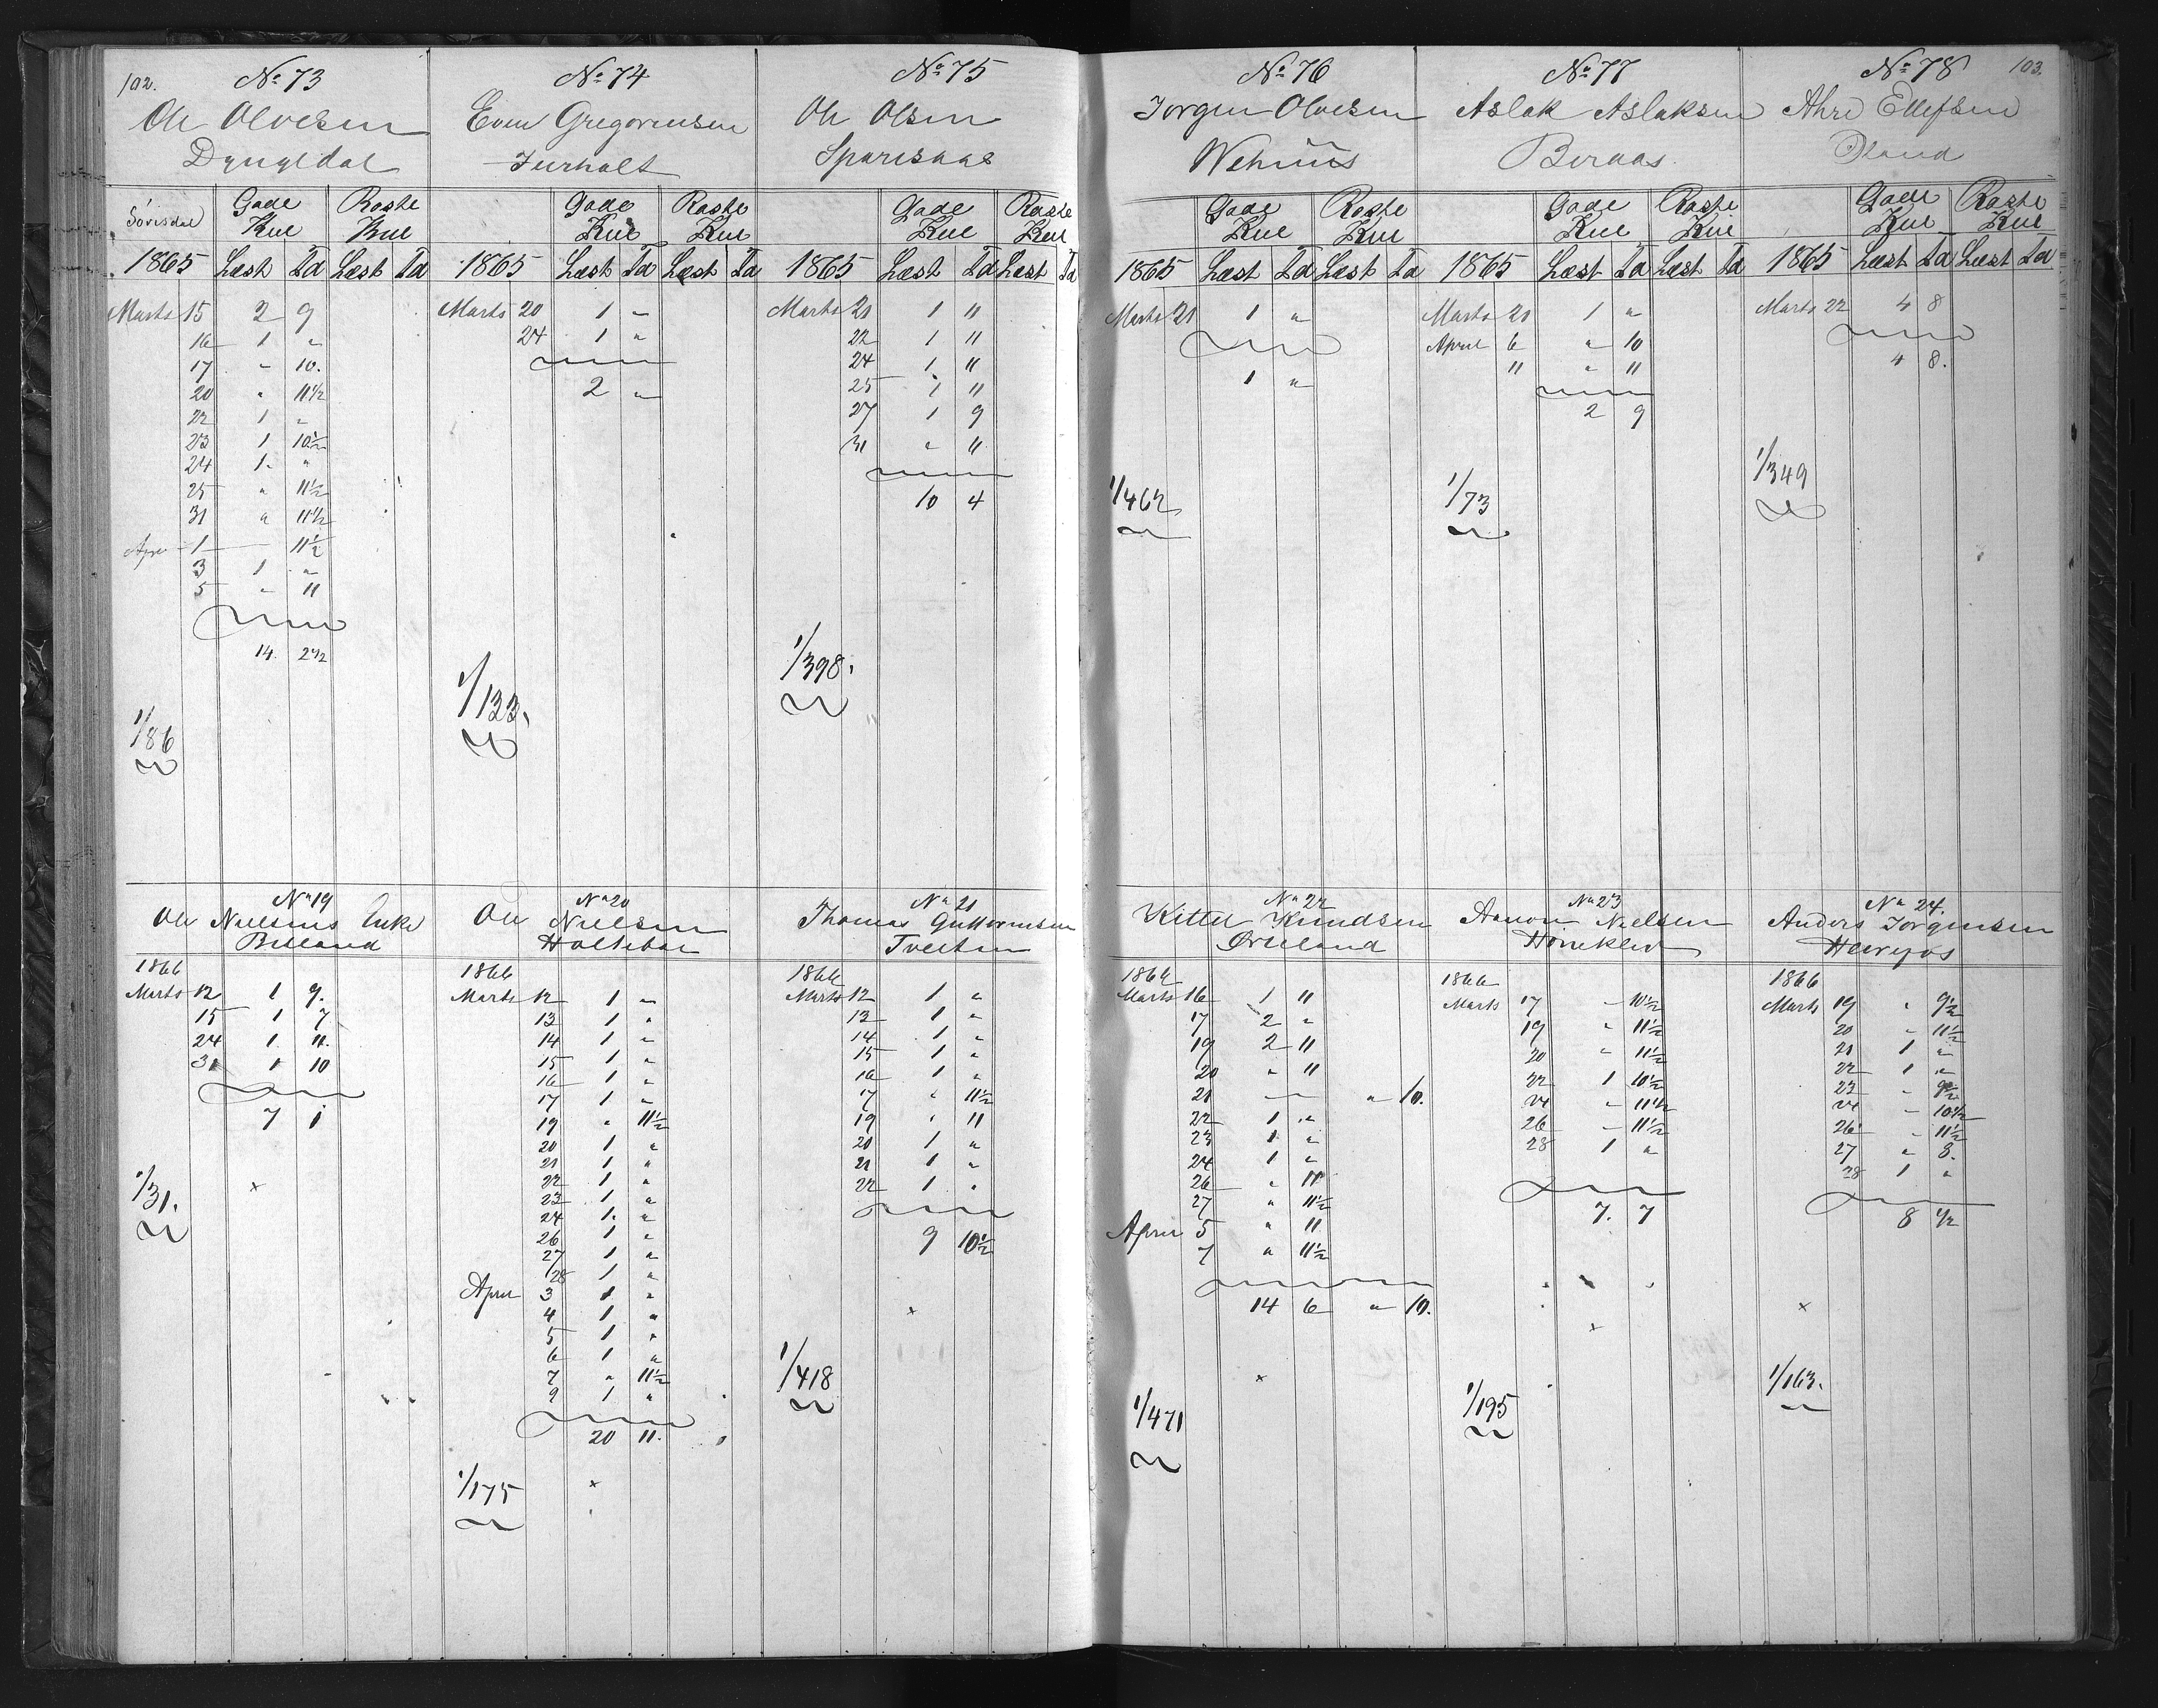 102.
No 73
Ole Olvesen
Dyngedal
Sörisdal
Gade Kul
Roste Kul
1865 Læst Td Læst Td
Marts 15 2 9
16 1 "
17 " 10.
20 " 11 1/2
22 1 "
23 1 10 1/2
24 1. "
25 " 11 1/2
31 " 11 1/2
Apr 1 — 11 1/2
3 1 "
5 " 11
14. 2 1/2
1/86
No 74
Even Gregoriusen
Jurholt
Gade Kul
Roste Kul
1865 Læst Td Læst Td
Marts 20 1 "
24 1 "
2 "
1/133.
No 75
Ole Olsen
Sparsaas
Gade Kul
Roste Kul
1865 Læst Td Læst Td
Marts 21 1 11
22 1 11
24 1 11
25 1 11
27 1 9
31 " 11
10 4
1/398.
No 76
Jorgen Olvesen
Wehuus
Gade Kul
Roste Kul
1865 Læst Td Læst Td
Marts 21 1 "
1 "
1/462
No 77
Aslak Aslaksen
Beraas
Gade Kul
Roste Kul
1865 Læst Td Læst Td
Marts 21 1 "
April 6 " 10
11 " 11
2 9
1/73
No 78
103.
Ahre Ellefsen
Öland
Gade Kul
Roste Kul
1865 Læst Td Læst Td
Marts 22 4 8
4 8.
1/349
No 19
Ole Nielsens Enke
Belland
1866
Marts 12 1 9.
15 1 7
24 1. 11.
31 1 10
7 1
1/31.
No 20
Ole Nielsen
Holtebae
1866
Marts 12 1 "
13 1 "
14 1 "
15 1 "
16 1 "
17 1 "
19 " 11 1/2
20 1 "
21 1 "
22 1 "
23 1 "
24 1. "
26 1 "
27 1 "
28 1 "
April 3 1 "
4 1 "
5 1 "
6 1 "
7 " 11 1/2
9 1 "
20 11.
1/175
No 21
Thomas Guttormsen
Tveiten
1866
Marts 12 1 "
13 1 "
14 1 "
15 1 "
16 1 "
17 " 11 1/2
19 " 11
20 1 "
21 1 "
22 1 "
9 10 1/2
1/418
No 22
Kittel Knudsen
Örteland
1866
Marts 16 1 11
17 2 "
19 2 11
20 " 11
21 — " 10.
22 1 "
23 1. "
24 1 "
26 " 11
27 " 11 1/2
April 5 " 11
7 " 11 1/2
14 6 " 10.
1/471
No 23
Aanon Nielsen
Hörreklev
1866
Marts 17 " 10 1/2
19 " 11 1/2
20 " 11 1/2
22 1 10 1/2
24 " 11 1/2
26 " 11 1/2
28 1 "
7. 7
1/195
No 24.
Anders Jorgensen
1866
Marts 19 " 9 1/2
20 " 11 1/2
21 1 "
22 1 "
23 " 9 1/2
24 " 10 1/2
26 " 11 1/2
27 " 8.
28 1 "
8 1/2
1/163.